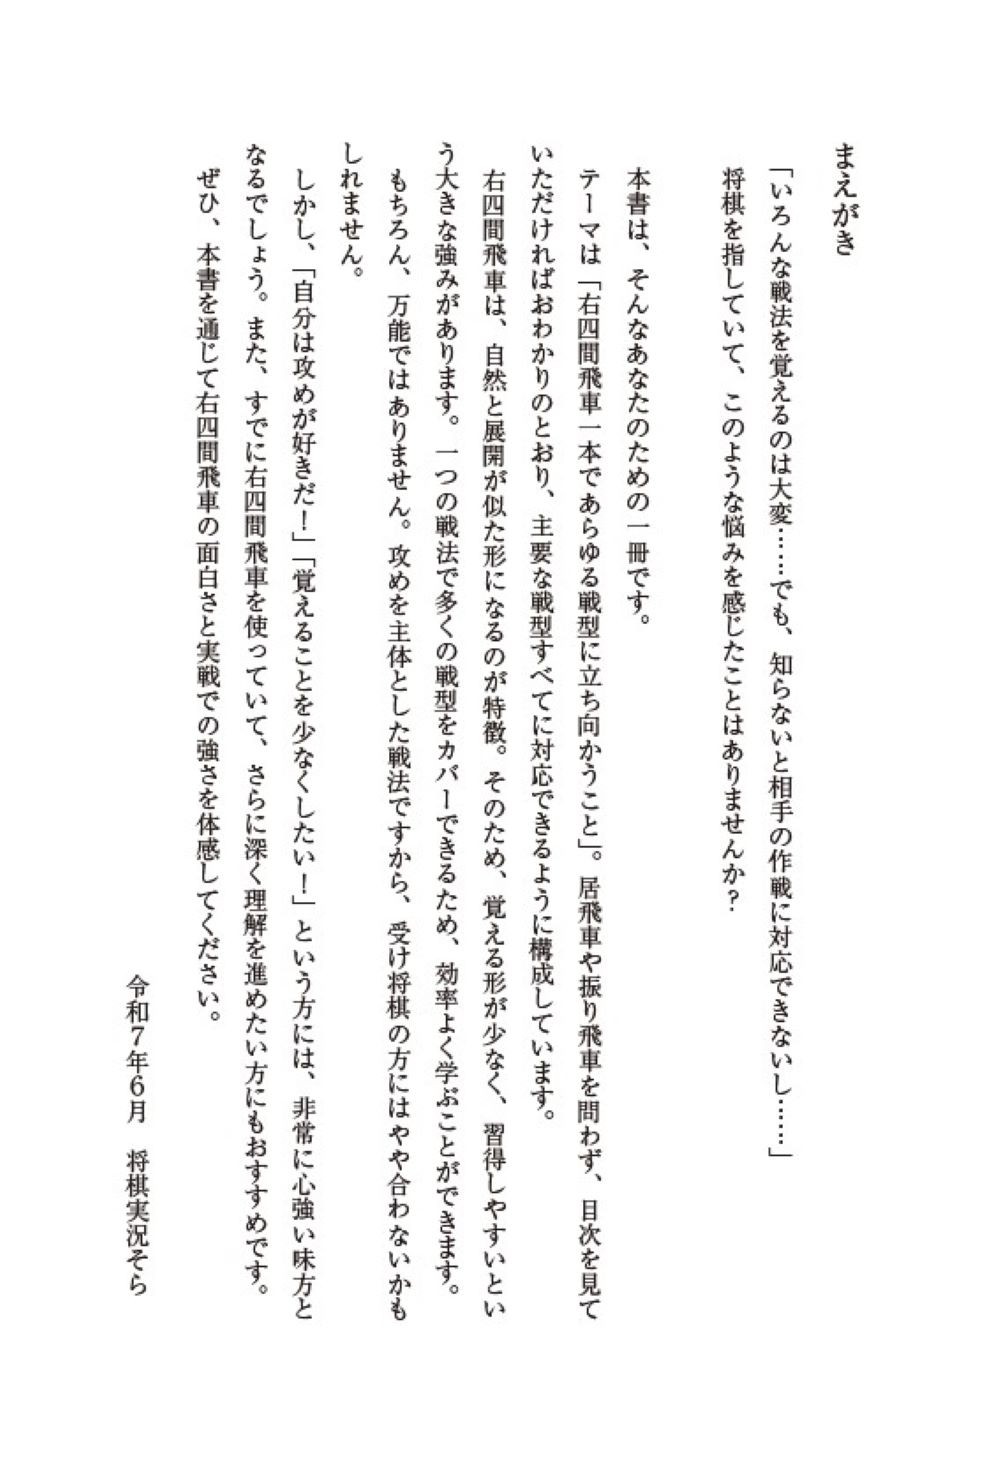 まえがき
「いろんな戦法を覚えるのは大変……でも、知らないと相手の作戦に対応できないし……」
将棋を指していて、このような悩みを感じたことはありませんか？
本書は、そんなあなたのための一冊です。
テーマは「右四間飛車一本であらゆる戦型に立ち向かうこと」。居飛車や振り飛車を問わず、目次を見て
いただければおわかりのとおり、主要な戦型すべてに対応できるように構成しています。
右四間飛車は、自然と展開が似た形になるのが特徴。そのため、覚える形が少なく、習得しやすいとい
う大きな強みがあります。一つの戦法で多くの戦型をカバーできるため、効率よく学ぶことができます。
もちろん、万能ではありません。攻めを主体とした戦法ですから、受け将棋の方にはやや合わないかも
しれません。
しかし、「自分は攻めが好きだ！」「覚えることを少なくしたい！」という方には、非常に心強い味方と
なるでしょう。また、すでに右四間飛車を使っていて、さらに深く理解を進めたい方にもおすすめです。
ぜひ、本書を通じて右四間飛車の面白さと実戦での強さを体感してください。
令和7年6月　将棋実況そら